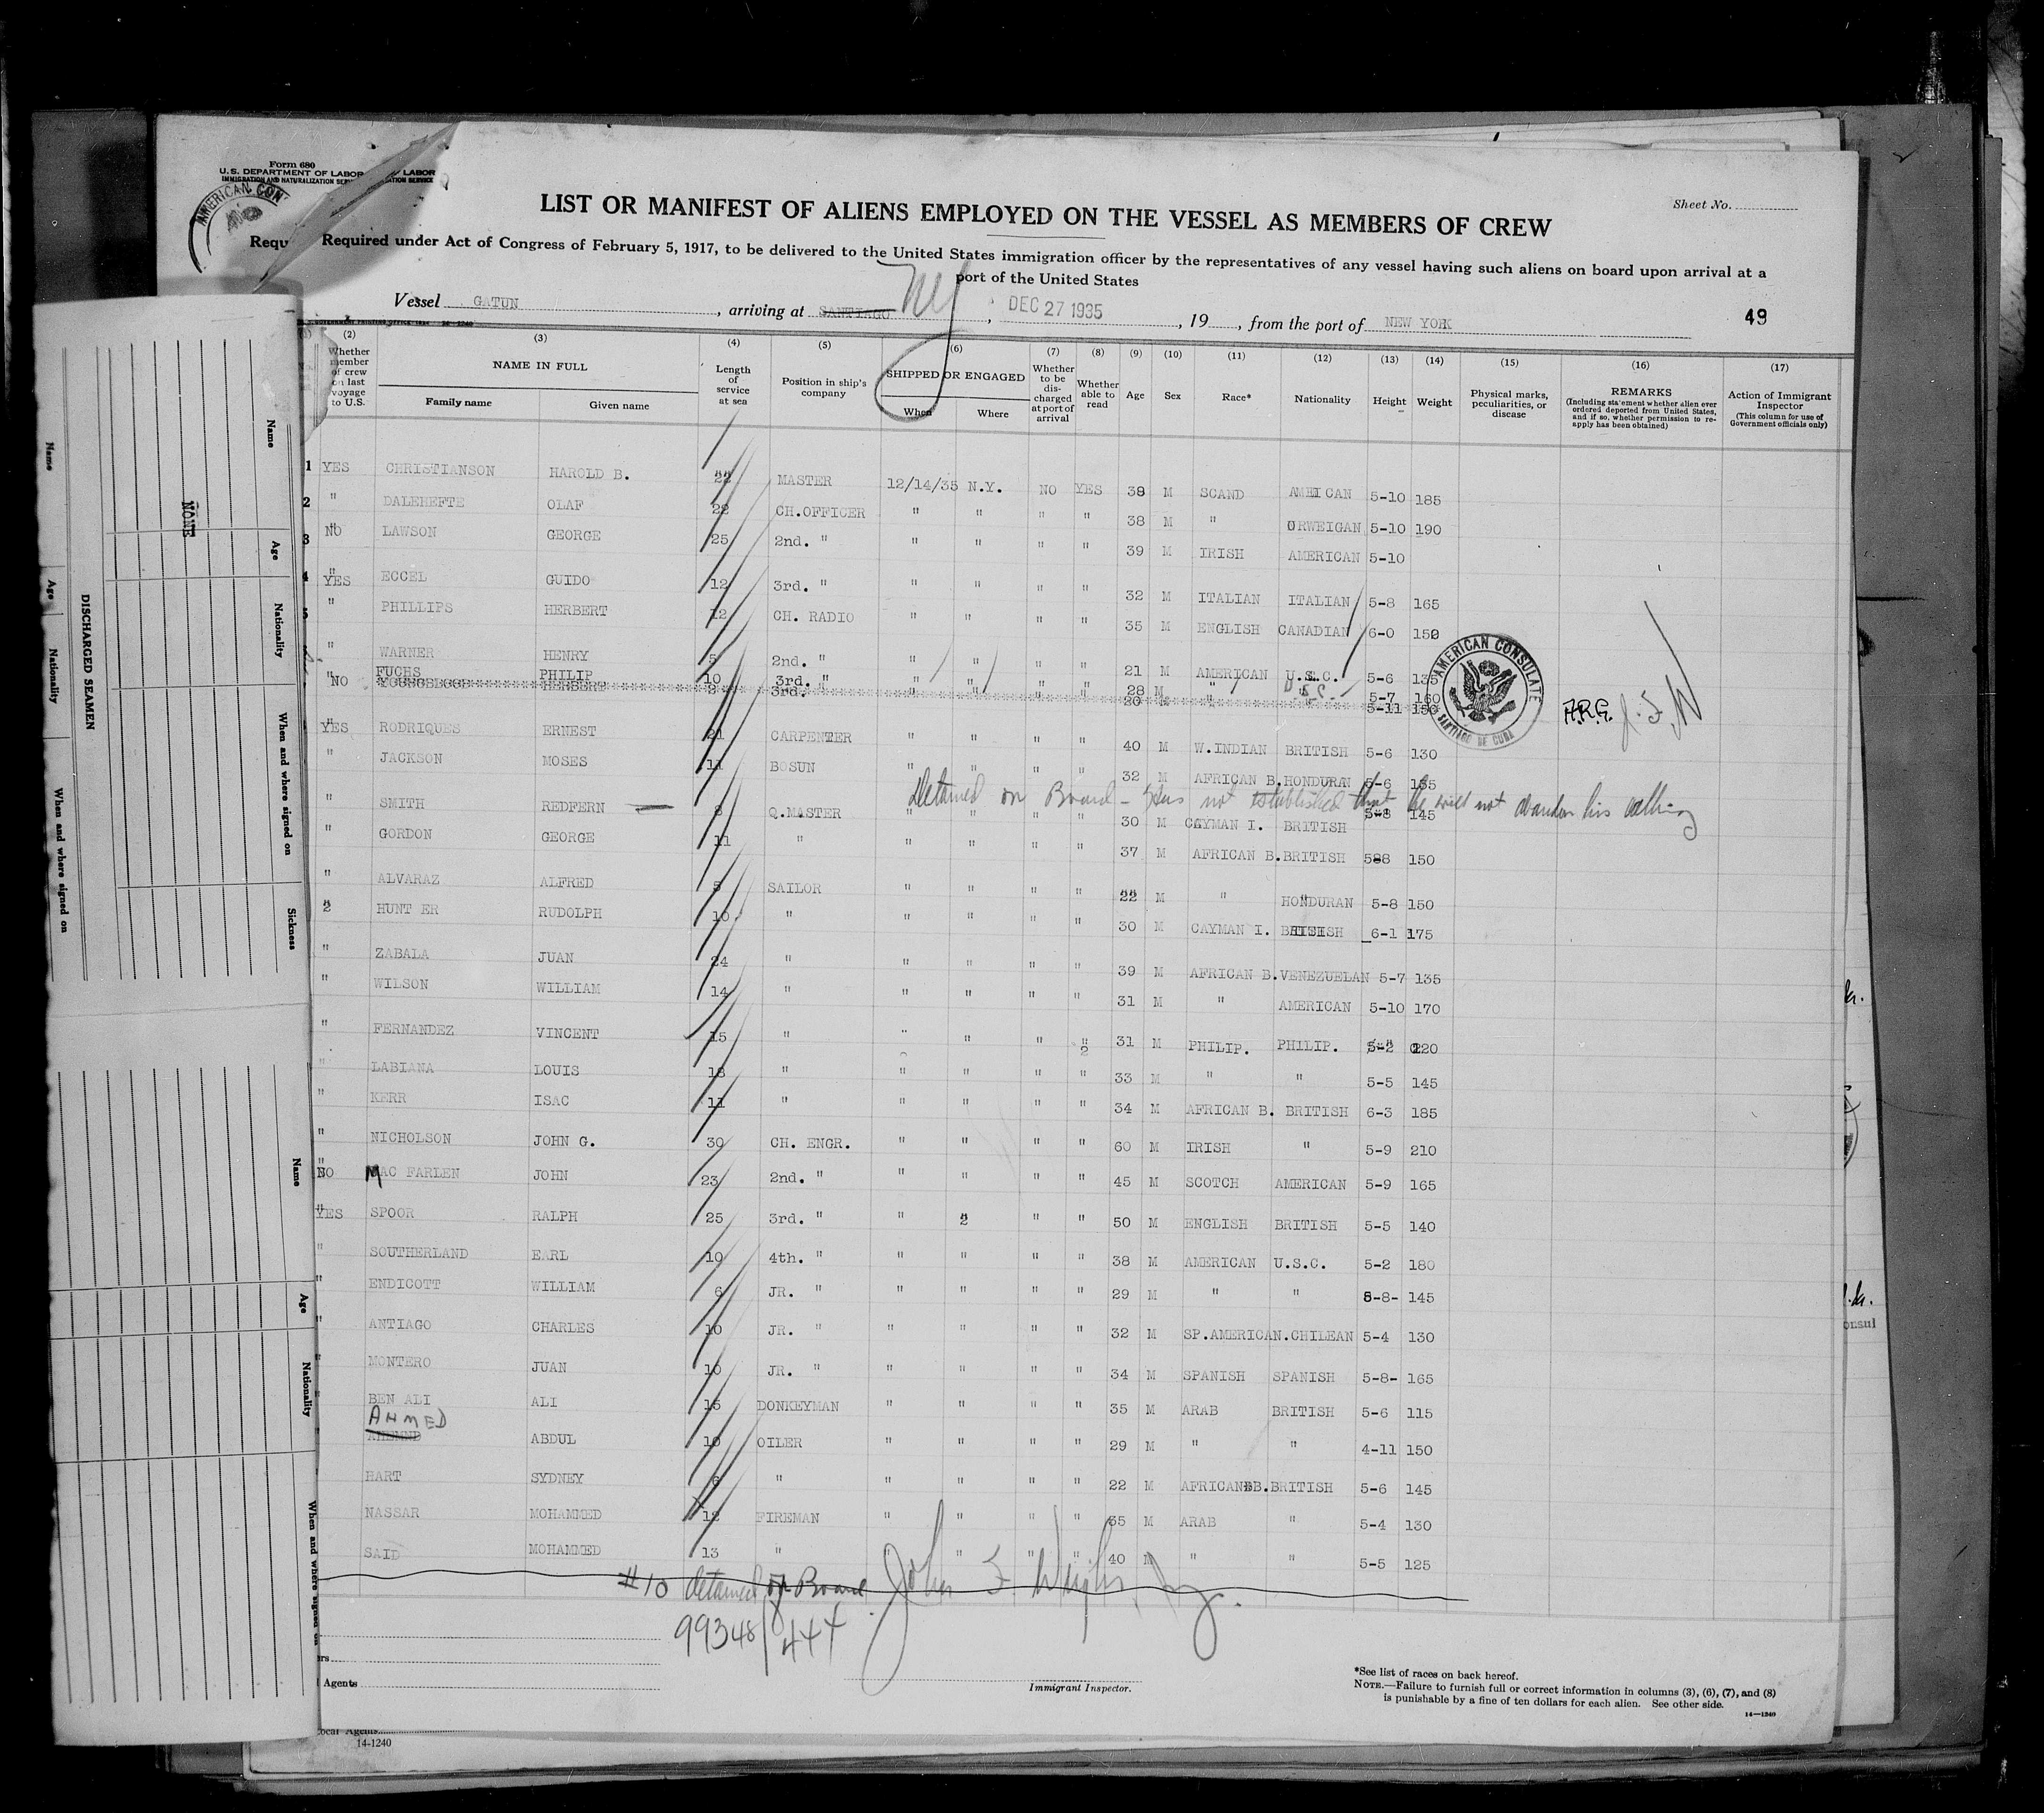 Form 680
U.S. DEPARTMENT OF LABOR
LABOR
IMMIGRATION AND NATURALIZATION SERVICE
AMERICAN CON
Sheet No.
LIST OR MANIFEST OF ALIENS EMPLOYED ON THE VESSEL AS MEMBERS OF CREW
Required under Act of Congress of February 5, 1917, to be delivered to the United States immigration officer by the representatives of any vessel having such aliens on board upon arrival at a
port of the United States
Vessel GATUN , arriving at SANTIAGO NY , DEC 27 1935 , 19 , from the port of NEW YORK 49
(2) (3) (4) (5) (6) (7) (8) (9) (10) (11) (12) (13) (14) (15) (16) (17)
Whether member of crew on last voyage to U.S. NAME IN FULL Family name Given name Length of service at sea Position in ship's company SHIPPED OR ENGAGED When Where Whether to be discharged at port of arrival Whether able to read Age Sex Race* Nationality Height Weight Physical marks, peculiarities, or disease REMARKS (Including statement whether alien ever ordered deported from United States, and if so, whether permission to re-apply has been obtained) Action of Immigrant Inspector (This column for use of Government officials only)
1 YES CHRISTIANSON HAROLD B. 22 MASTER 12/14/35 N.Y. NO YES 38 M SCAND AMEICAN 5-10 185
2 " DALEHEFTE OLAF 22 CH.OFFICER " " " " 38 M " ORWEIGAN 5-10 190
3 NO LAWSON GEORGE 25 2nd. " " " " " 39 M IRISH AMERICAN 5-10
4 YES ECCEL GUIDO 12 3rd. " " " " " 32 M ITALIAN ITALIAN 5-8 165
" PHILLIPS HERBERT 12 CH. RADIO " " " " 35 M ENGLISH CANADIAN 6-0 150
" WARNER HENRY 5 2nd. " " " " " 21 M AMERICAN U.S.C. 5-6 135
" FUCHS PHILIP 10 3rd. " " " " " 28 M " U.S.C. 5-7 160
NO YOUNGBLOOD HERBERT 2 3rd. " 20 M " 5-11 150
AMERICAN CONSULATE
SANTIAGO DE CUBA
A.R.G. J.F.W
YES RODRIQUES ERNEST 21 CARPENTER " " " " 40 M W.INDIAN BRITISH 5-6 130
" JACKSON MOSES 11 BOSUN " " " " 32 M AFRICAN B.HONDURAN 5-6 185
Detained on Board - Has not established that he will not abandon his calling
" SMITH REDFERN 8 Q.MASTER " " " " 30 M CAYMAN I. BRITISH 5-8 145
" GORDON GEORGE 11 " " " " " 37 M AFRICAN B.BRITISH 588 150
" ALVARAZ ALFRED 5 SAILOR " " " " 22 M " HONDURAN 5-8 150
" HUNT ER RUDOLPH 10 " " " " " 30 M CAYMAN I. BRITISH 6-1 175
" ZABALA JUAN 24 " " " " " 39 M AFRICAN B.VENEZUELAN 5-7 135
" WILSON WILLIAM 14 " " " " " 31 M " AMERICAN 5-10 170
" FERNANDEZ VINCENT 15 " " " " " 31 M PHILIP. PHILIP. 5-2 120
" LABIANA LOUIS 18 " " " " " 33 M " " 5-5 145
" KERR ISAC 11 " " " " " 34 M AFRICAN B. BRITISH 6-3 185
" NICHOLSON JOHN G. 30 CH. ENGR. " " " " 60 M IRISH " 5-9 210
NO MAC FARLEN JOHN 23 2nd. " " " " " 45 M SCOTCH AMERICAN 5-9 165
YES SPOOR RALPH 25 3rd. " " " " " 50 M ENGLISH BRITISH 5-5 140
" SOUTHERLAND EARL 10 4th. " " " " " 38 M AMERICAN U.S.C. 5-2 180
" ENDICOTT WILLIAM 6 JR. " " " " " 29 M " " 8-8- 145
" ANTIAGO CHARLES 10 JR. " " " " " 32 M SP.AMERICAN.CHILEAN 5-4 130
" MONTERO JUAN 10 JR. " " " " " 34 M SPANISH SPANISH 5-8- 165
BEN ALI ALI 15 DONKEYMAN " " " " 35 M ARAB BRITISH 5-6 115
AHMED ABDUL 10 OILER " " " " 29 M " " 4-11 150
HART SYDNEY 6 " " " " " 22 M AFRICAN B.BRITISH 5-6 145
NASSAR MOHAMMED 12 FIREMAN " " " " 35 M ARAB " 5-4 130
SAID MOHAMMED 13 " " " " " 40 M " " 5-5 125
#10 detained on Board
99348/444
Immigrant Inspector.
Agents
*See list of races on back hereof.
NOTE.—Failure to furnish full or correct information in columns (3), (6), (7), and (8)
is punishable by a fine of ten dollars for each alien. See other side.
14—1240
Local Agents
14-1240
DISCHARGED SEAMEN
Name
Age
Nationality
When and where signed on
Sickness
NONE
Name
Age
Nationality
When and where signed on
onsul